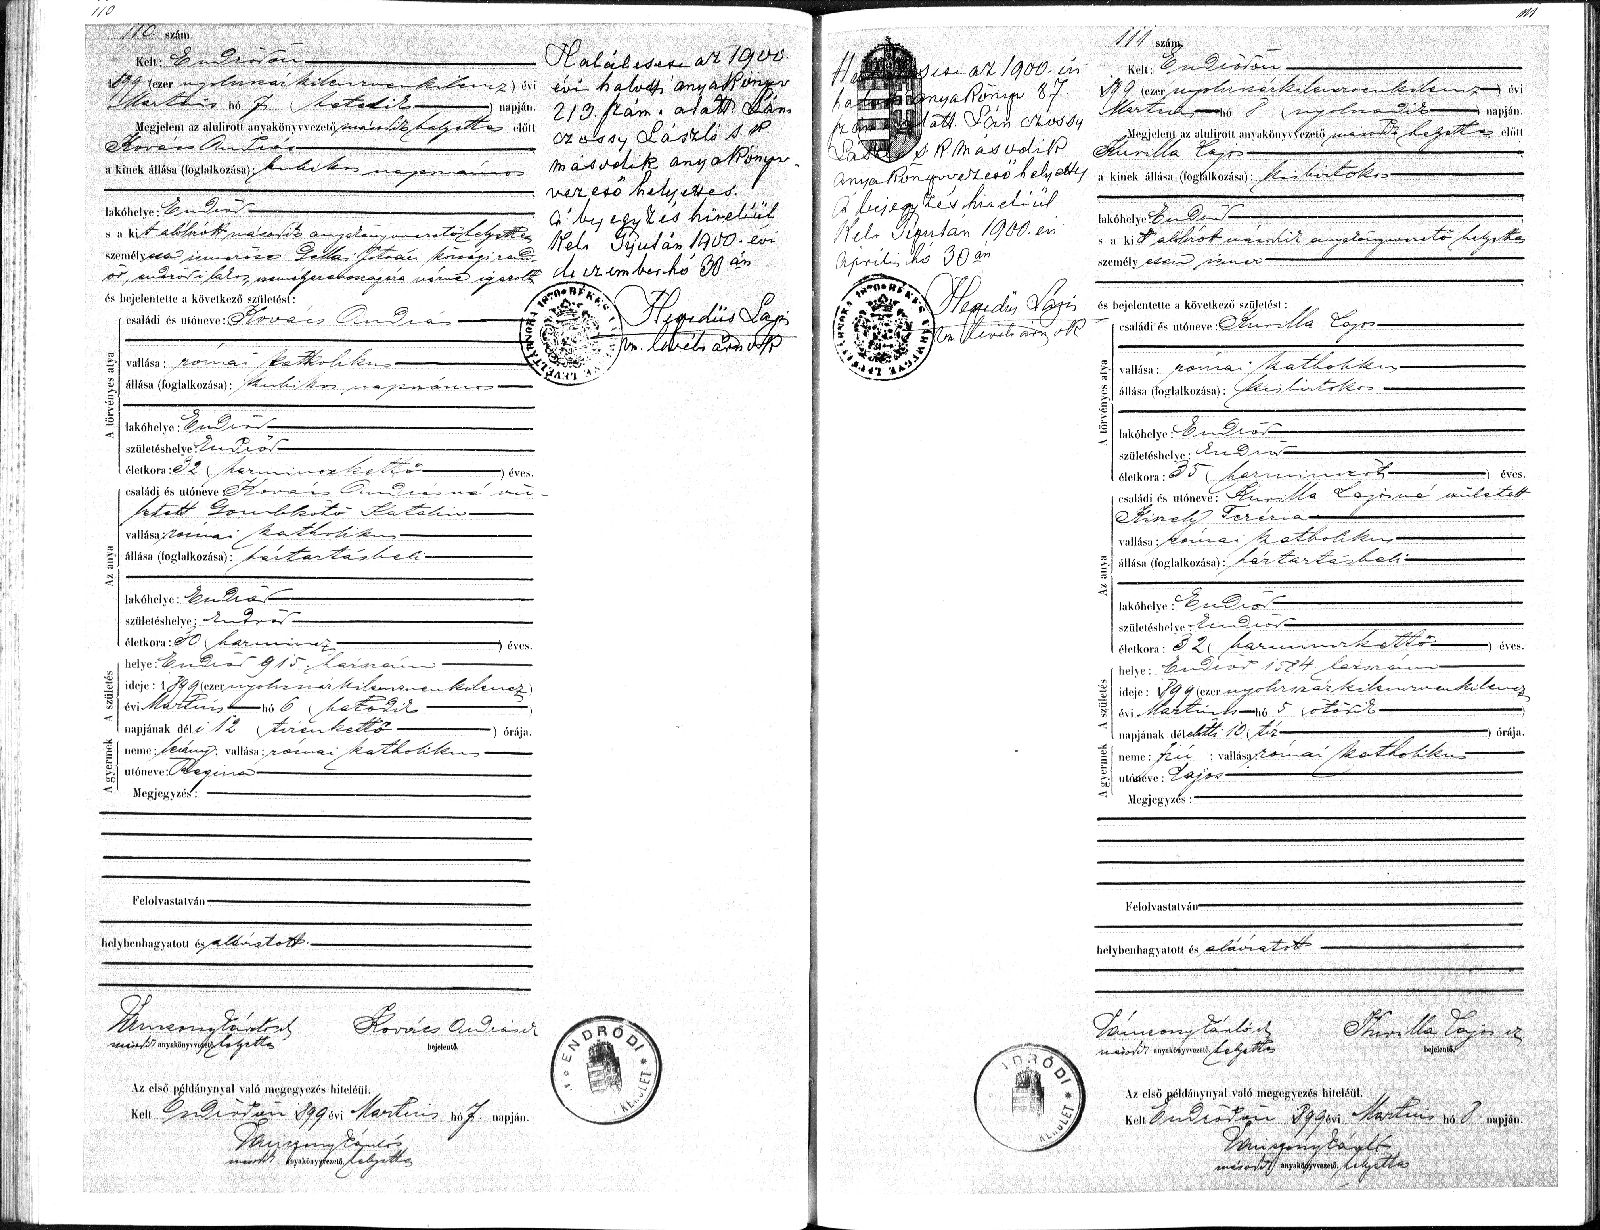 110
110 szám.
Kelt: Endrődön
1899 (ezer nyolcszázkilenczvenkilencz) évi
Martius hó 7 (hetedik) napján.
Megjelent az alulirott anyakönyvvezető második helyettes előtt
Kovács András
a kinek állása (foglalkozása): kubikos napszámos
lakóhelye: Endrőd
s a kit alulirott második anyakönyvvezető helyettes
személy
és bejelentette a következő születést:
A törvényes atya
családi és utóneve: Kovács András
vallása: római katholikus
állása (foglalkozása): kubikos napszámos
lakóhelye: Endrőd
születéshelye: Endrőd
életkora: 32 (harminczkettő) éves.
Az anya
családi és utóneve Kovács Andrásné szü-
letett Gombkötő Katalin
vallása: római katholikus
állása (foglalkozása): háztartásbeli
lakóhelye: Endrőd
születéshelye: Endrőd
életkora: 30 (harmincz) éves.
A születés
helye: Endrőd 915 házszám
ideje: 1899 (ezer nyolcszázkilenczvenkilencz)
évi Martius hó 6 (hatodik)
napjának déli 12 (tizenkettő) órája.
A gyermek
neme: leány; vallása: római katholikus
utóneve: Regina
Megjegyzés:
Felolvastatván
helybenhagyatott és aláiratott.
második anyakönyvvezető helyettes
Kovács András
bejelentő.
Az első példánynyal való megegyezés hiteléül.
Kelt Endrődön 899 évi Martius hó 7. napján.
második anyakönyvvezető helyettes
Halálesete az 1900.
évi halotti anyakönyv
213. szám. alatt. Lán
czossy László s. k.
második anyakönyv-
vezető helyettes.
A bejegyzés hiteléül
Kelt Gyulán 1900. évi
deczember hó 30 án
Hegedüs Lajos
vm. levéltárnok
BÉKÉS VÁRMEGYE LEVÉLTÁRNOKA 1870
ENDRŐDI KERÜLET
111
111 szám.
Kelt: Endrődön
1899 (ezer nyolcszázkilenczvenkilencz) évi
Martius hó 8 (nyolczadik) napján.
Megjelent az alulirott anyakönyvvezető második helyettes előtt
Kurilla Lajos
a kinek állása (foglalkozása): kisbirtokos
lakóhelye: Endrőd
s a kit alulirott második anyakönyvvezető helyettes
személyesen ismer
és bejelentette a következő születést:
A törvényes atya
családi és utóneve: Kurilla Lajos
vallása: római katholikus
állása (foglalkozása): kisbirtokos
lakóhelye: Endrőd
születéshelye: Endrőd
életkora: 35 (harminczöt) éves.
Az anya
családi és utóneve: Kurilla Lajosné született
Kinely Terézia
vallása: római katholikus
állása (foglalkozása): háztartásbeli
lakóhelye: Endrőd
születéshelye: Endrőd
életkora: 32 (harminczkettő) éves.
A születés
helye: Endrőd 1584 házszám
ideje: 1899 (ezer nyolcszázkilenczvenkilencz)
évi Martius hó 5 (ötödik)
napjának délelőtti 10 (tíz) órája.
A gyermek
neme: fiú; vallása: római katholikus
utóneve: Lajos
Megjegyzés:
Felolvastatván
helybenhagyatott és aláiratott
második anyakönyvvezető helyettes
Kurilla Lajos
bejelentő.
Az első példánynyal való megegyezés hiteléül.
Kelt Endrődön 899 évi Martius hó 8 napján.
második anyakönyvvezető helyettes
az 1900. évi
anyakönyv 87.
alatt Lánczossy
s k második
anyakönyvvezető helyettes
A bejegyzés hiteléül
Kelt Gyulán 1900. évi
április hó 30 án
Hegedüs Lajos
vm levéltárnok
BÉKÉS VÁRMEGYE LEVÉLTÁRNOKA 1870
ENDRŐDI KERÜLET